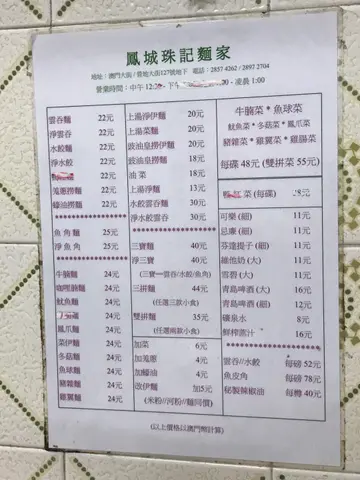 鳳城珠記麵家
營業時間：中午12:
凌晨1:00
雲吞麵 22元
淨雲吞 22元
水餃麵 22元
淨水餃 22元
22元
蔥撈麵 22元
蠔油撈麵 22元
魚角麵 25元
淨魚角 25元
牛腩麵 24元
咖喱腩麵 24元
魷魚麵 24元
24元
鳳爪麵 24元
菜伊麵 24元
冬菇麵 24元
魚球麵 24元
豬雜麵 24元
雞翼麵 24元
上湯淨伊麵 20元
上湯菜麵 20元
豉油皇撈伊麵 20元
豉油皇撈麵 18元
油菜 18元
上湯淨麵 13元
水餃雲吞麵 30元
淨水餃雲吞 30元
三寶麵 40元
淨三寶 40元
(三寶—雲吞/水餃/魚角)
三拼麵 44元
(任選三款小食)
雙拼麵 35元
(任選兩款小食)
加菜 6元
加蔥 4元
加蠔油 4元
改伊麵 加5元
(米粉//河粉//麵同價)
牛腩菜 * 魚球菜
魷魚菜 * 冬菇菜 * 鳳爪菜
豬雜菜 * 雞翼菜 * 雞腸菜
每碟 48元 (雙拼菜 55元)
菜 (每碟)
可樂 (細) 11元
忌廉 (細) 11元
芬達提子 (細) 11元
維他奶 (大) 11元
雪碧 (大) 11元
青島啤酒 (大) 16元
青島啤酒 (細) 12元
礦泉水 8元
鮮榨蔗汁 16元
雲吞//水餃 每磅 52元
魚皮角 每磅 78元
秘製辣椒油 每樽 40元
(以上價格以澳門幣計算)